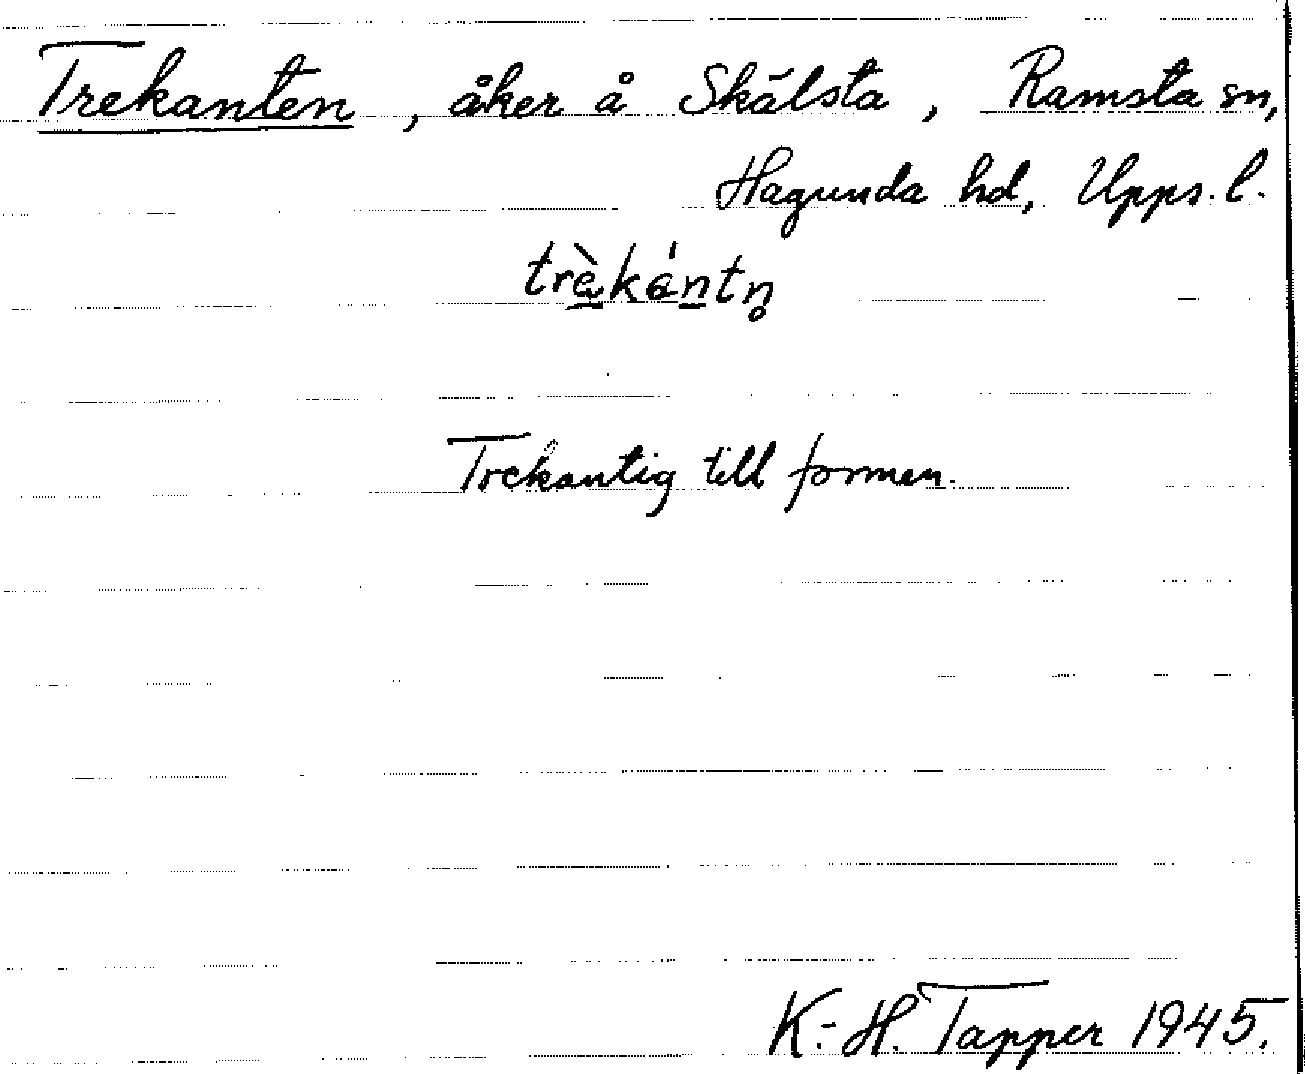 Trekanten, åker å Skälsta, Ramsta sn,
Hagunda hd, Upps. l.
trè̠kántn̥
Trekantig till formen.
K.-H. Tapper 1945.